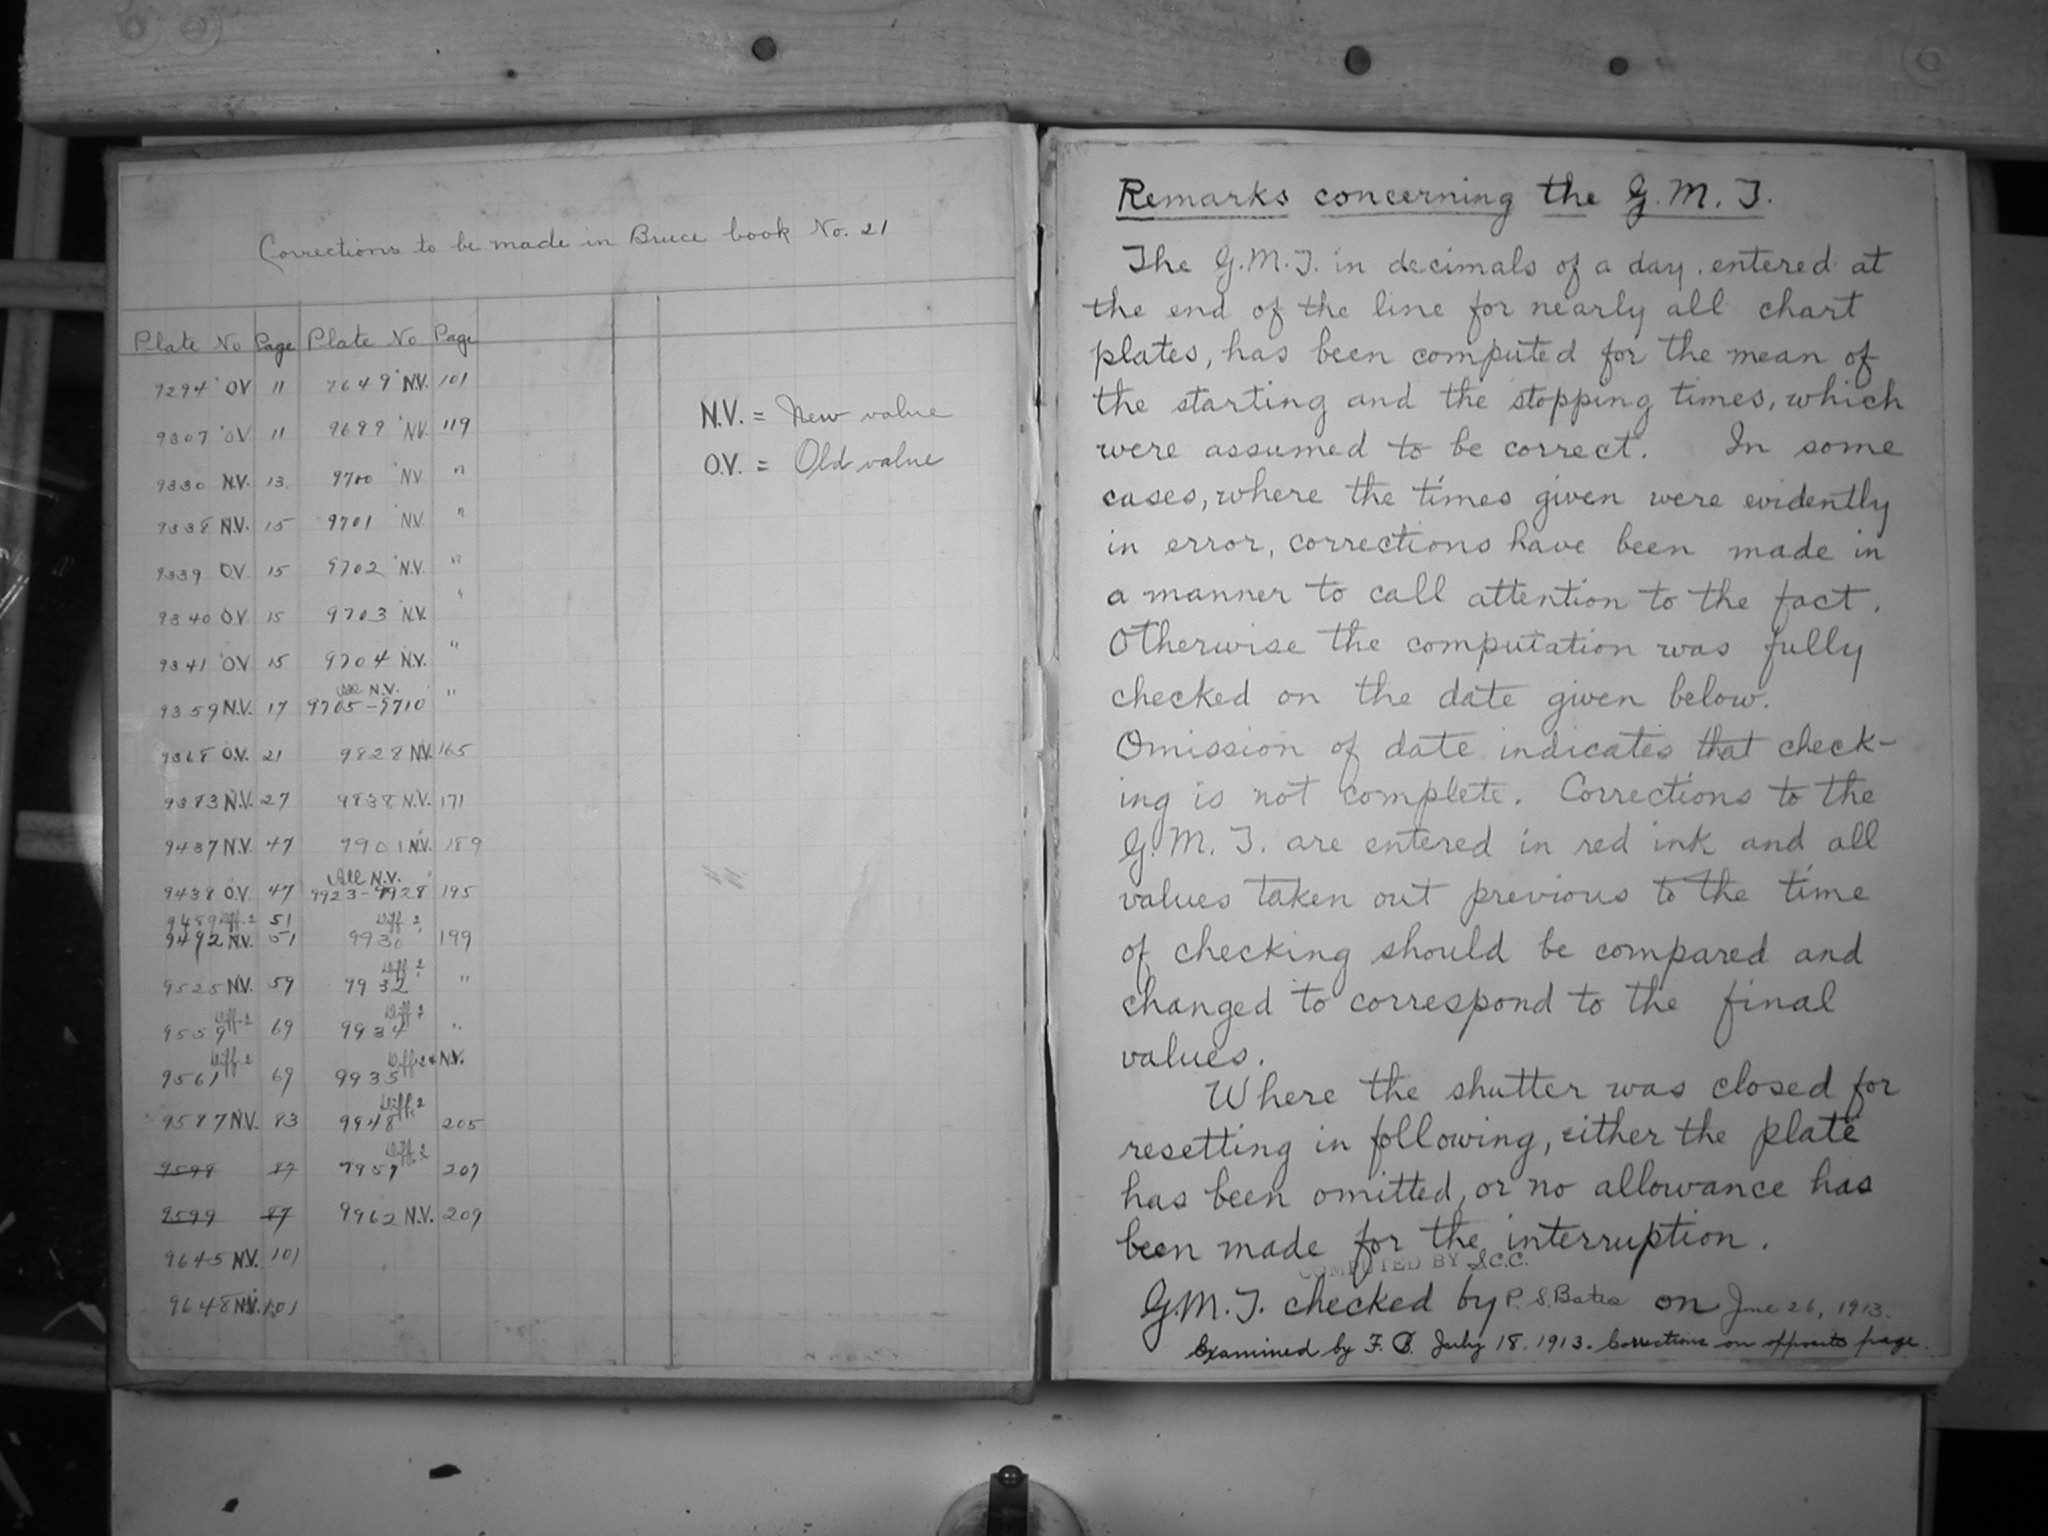 Corrections to be made in Bruce book No. 21
Plate No Page Plate No Page
9294 O.V. 11 9649 N.V. 101
9307 O.V. 11 9699 N.V. 119
9330 N.V. 13 9700 N.V. "
9338 N.V. 15 9701 N.V. "
9339 O.V. 15 9702 N.V. "
9340 O.V. 15 9703 N.V. "
9341 O.V. 15 9704 N.V. "
All N.V.
9359 N.V. 17 9705-9710 "
9368 O.V. 21 9828 N.V. 165
9383 N.V. 27 9838 N.V. 171
9437 N.V. 47 9901 N.V. 189
All N.V.
9438 O.V. 47 9923-9928 195
9489 Diff. 2 51 Diff 2
9492 N.V. 51 9930 199
Diff. 2
9525 N.V. 59 9932 "
Diff. 2 Diff 2
9559 69 9934 "
Diff. 2 Diff 2 & N.V.
9561 69 9935
Diff. 2
9587 N.V. 83 9948 205
Diff. 2
9598 87 9957 207
9599 87 9962 N.V. 209
9645 N.V. 101
9648 N.V. 101
N.V. = New value
O.V. = Old value
Remarks concerning the G.M.T.
The G.M.T. in decimals of a day, entered at
the end of the line for nearly all chart
plates, has been computed for the mean of
the starting and the stopping times, which
were assumed to be correct. In some
cases, where the times given were evidently
in error, corrections have been made in
a manner to call attention to the fact.
Otherwise the computation was fully
checked on the date given below.
Omission of date indicates that check-
ing is not complete. Corrections to the
G.M.T. are entered in red ink and all
values taken out previous to the time
of checking should be compared and
changed to correspond to the final
values.
Where the shutter was closed for
resetting in following, either the plate
has been omitted, or no allowance has
been made for the interruption.
COMPUTED BY S.C.C.
G.M.T. checked by P. S. Bates on June 26, 1913.
Examined by F. B. July 18. 1913. Corrections on opposite page.